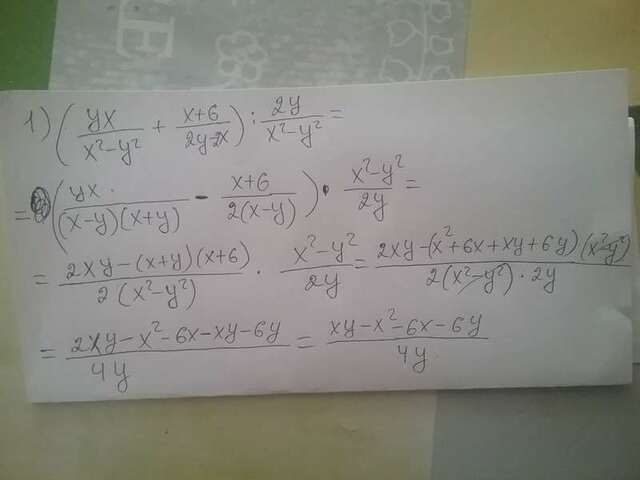 1) (yx/(x²-y²) + (x+6)/(2y-2x)) : 2y/(x²-y²) =
= (yx/((x-y)(x+y)) - (x+6)/(2(x-y))) · (x²-y²)/2y =
= (2xy-(x+y)(x+6))/(2(x²-y²)) · (x²-y²)/2y = (2xy-(x²+6x+xy+6y)(x²-y²))/(2(x²-y²)·2y)
= (2xy-x²-6x-xy-6y)/4y = (xy-x²-6x-6y)/4y